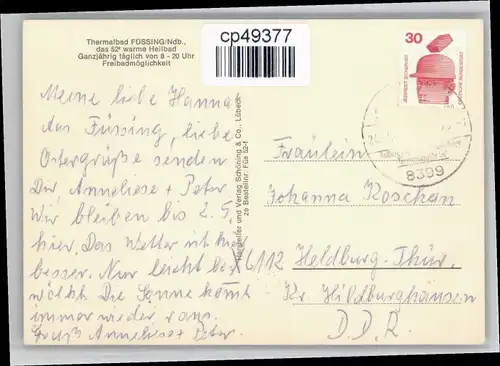 Thermalbad FÜSSING/Ndb.,
das 52° warme Heilbad
Ganzjährig täglich von 8 - 20 Uhr
Freibadmöglichkeit
cp49377
30
8399
Meine liebe Hanna
Aus Füssing, liebe
Ostergrüße senden
Dir Anneliese + Peter
Wir bleiben bis 2.5.
hier. Das Wetter ist hier
besser. Nur leicht be-
wölkt. Die Sonne kommt
immer wieder raus.
Gruß Anneliese + Peter.
Hersteller und Verlag Schöning & Co., Lübeck
Bestellnr. Füs 52-1
Fräulein
Johanna Koschan
6112 Heldburg-Thür.
Kr Hildburghausen
D.D.R.